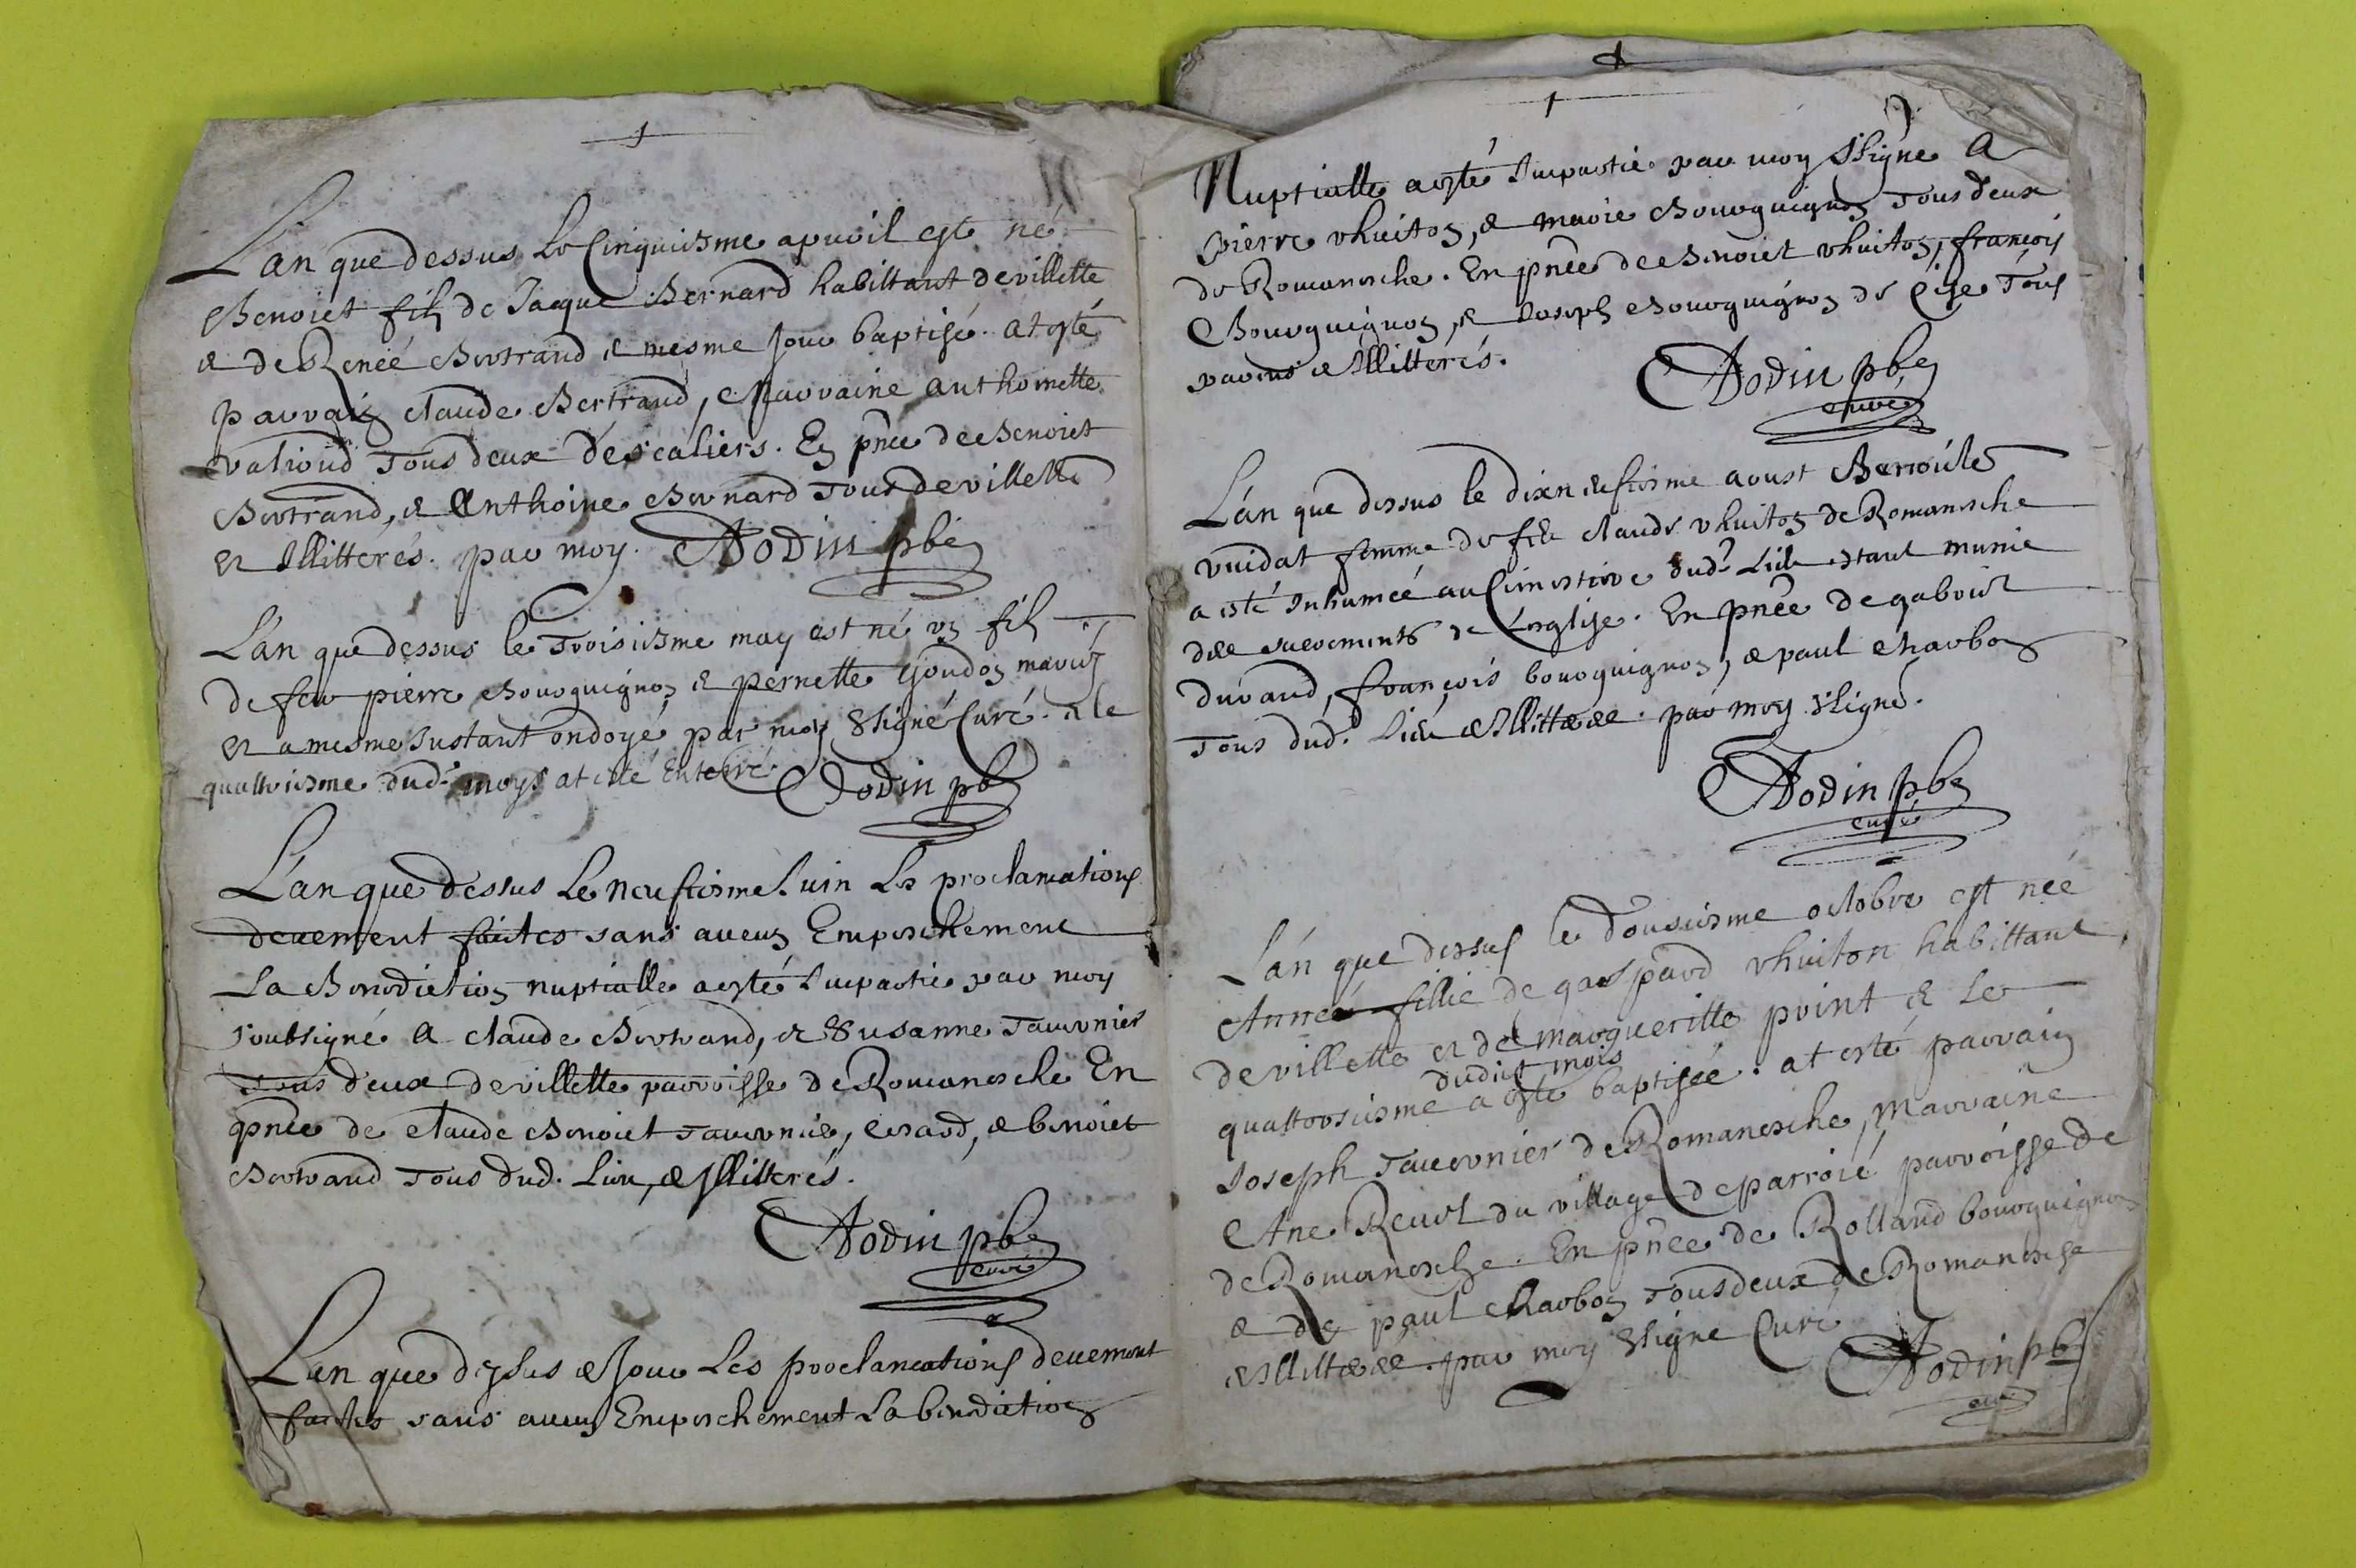 L'an que dessus Le Cinquiesme apvril est né
Benoiet filz de Jacque Bernard habittant de villette
& de Reneé Bertrand & mesme Jour baptisé. at esté
parrain Claude Bertrand, Marraine Anthoinette
Valioud Tous deux d'escaliers. En pñce de Benoiet
Bertrand, & Anthoine Bernard Tous de villette
et Illitterés. par moy. Dodin pbr
L'an que dessus le Troisiesme may est né un filz
de feu pierre Bourguignon & pernette Goudon mariez
et a mesme Instant ondoyé par moy Sbsigné Curé. & le
quattriesme dud. moys at esté Enterré. Dodin pbr
L'an que dessus Le neufiesme Juin Les proclamations
deuement faites sans aucun Empeschement
La Benediction nuptialle a esté Impartie par moy
soubsigné A Claude Bertrand, & Susanne Tavernier
Tous deux de villette parroisse de Romanesche En
pñce de Claude Benoiet Tavernier, & benoiet
Bertrand Tous dud. Lieu, & Illitterés.
Dodin pbr
curé
L'an que dessus & Jour Les proclamations deuement
faites sans aucun Empeschement La benediction
Nuptialle a esté Impartie par moy Sbsigné A
pierre vhuiton, & marie Bourguignon Tous deux
de Romanesche. En pñce de Benoiet vhuiton, françois
Bourguignon, & Joseph Bourguignon de Cize Tous
parens & Illitterés.
Dodin pbr
curé
L'an que dessus le dixneufiesme aoust
vuidat femme de feu Claude vhuiton de Romanesche
a esté Inhumeé au Cimestiere dud. Lieu estant munie
des sacrements de L'esglise. En pñce de
durand, françois bourguignon, & paul Charbon
Tous dud. Lieu & Illitterés. par moy Sbsigné.
Dodin pbr
curé
L'an que dessus le Douziesme octobre est neé
Anne fillie de gaspard vhuiton habittant
de villette et de margueritte point & le
dudict mois
quattorsiesme a esté baptiseé. at esté parrain
Joseph Tavernier de Romanesche, Marraine
Ane Revol du village de parroié parroisse de
de Romanesche. En pñce de Rolland bourguignon
& de paul Charbon Tous deux de Romanesche
& Illitterés. par moy Sbsigné Curé
Dodin pbr
curé